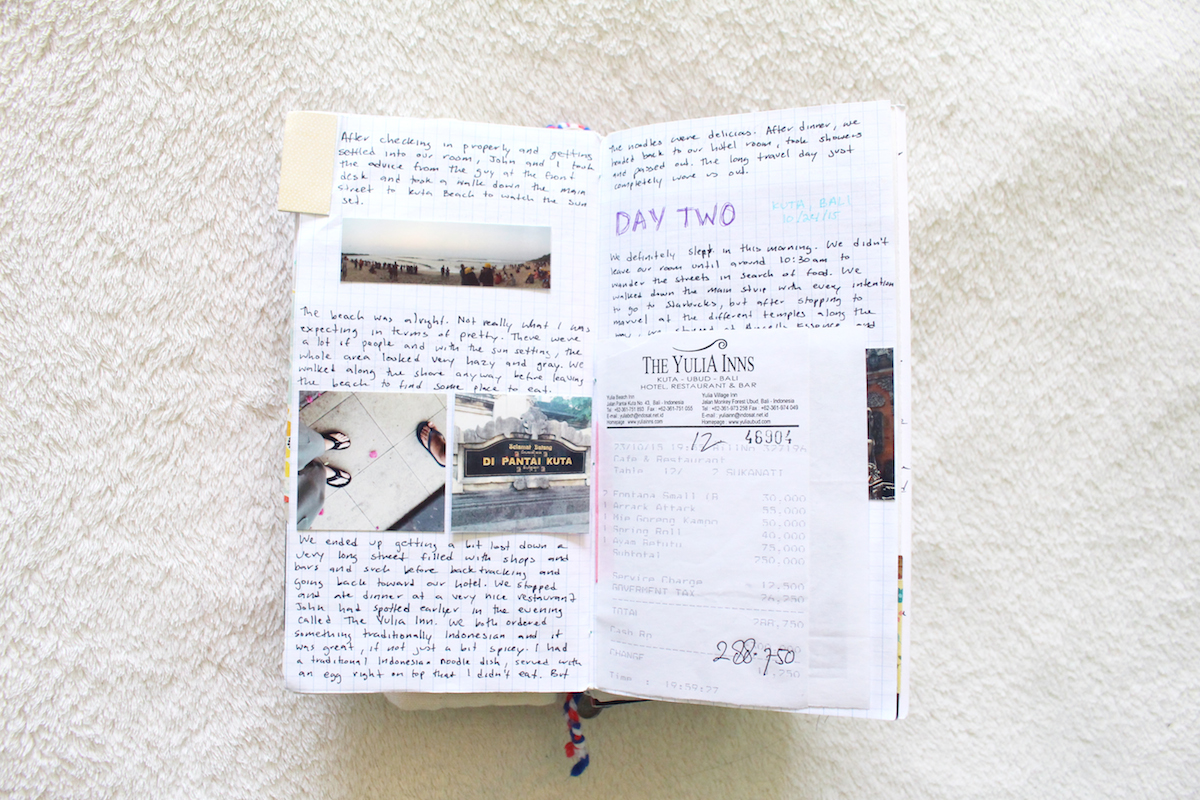 After checking in properly and getting
settled into our room, John and I took
the advice from the guy at the front
desk and took a walk down the main
street to Kuta Beach to watch the sun
set.
The beach was alright. Not really what I was
expecting in terms of pretty. There were
a lot of people and with the sun setting, the
whole area looked very hazy and gray. We
walked along the shore anyway before leaving
the beach to find some place to eat.
Selamat Datang
DI PANTAI KUTA
We ended up getting a bit lost down a
very long street filled with shops and
bars and such before backtracking and
going back toward our hotel. We stopped
and ate dinner at a very nice restaurant
John had spotted earlier in the evening
called The Yulia Inn. We both ordered
something traditionally Indonesian and it
was great, if not just a bit spicey. I had
a traditional Indonesian noodle dish, served with
an egg right on top that I didn't eat. But
the noodles were delicius. After dinner, we
headed back to our hotel room, took showers
and passed out. The long travel day just
completely wore us out.
DAY TWO
KUTA, BALI
We definitely slept in this morning. We didn't
leave our room until around 10:30am to
wander the streets in search of food. We
walked down the main strip with every intention
to go to Starbucks, but after stopping to
marvel at the different temples along the
THE YULIA INNS
KUTA - UBUD - BALI
HOTEL, RESTAURANT & BAR
Yulia Beach Inn
Jalan Pantai Kuta No. 43, Bali - Indonesia
Homepage : www.yuliainns.com
Yulia Village Inn
Jalan Monkey Forest Ubud, Bali - Indonesia
Homepage : www.yuliaubud.com
12
46904
Cafe & Restaurant
Table 12/
Fontana Small
30,000
Arrack Attack
55,000
Mie Goreng Kampo
50,000
Spring Roll
40,000
Ayam Betutu
75,000
Subtotal
250,000
Service Charge
12,500
GOVERMENT TAX
26,250
TOTAL
288,750
Cash Rp
288.750
CHANGE
Time : 19:59:27